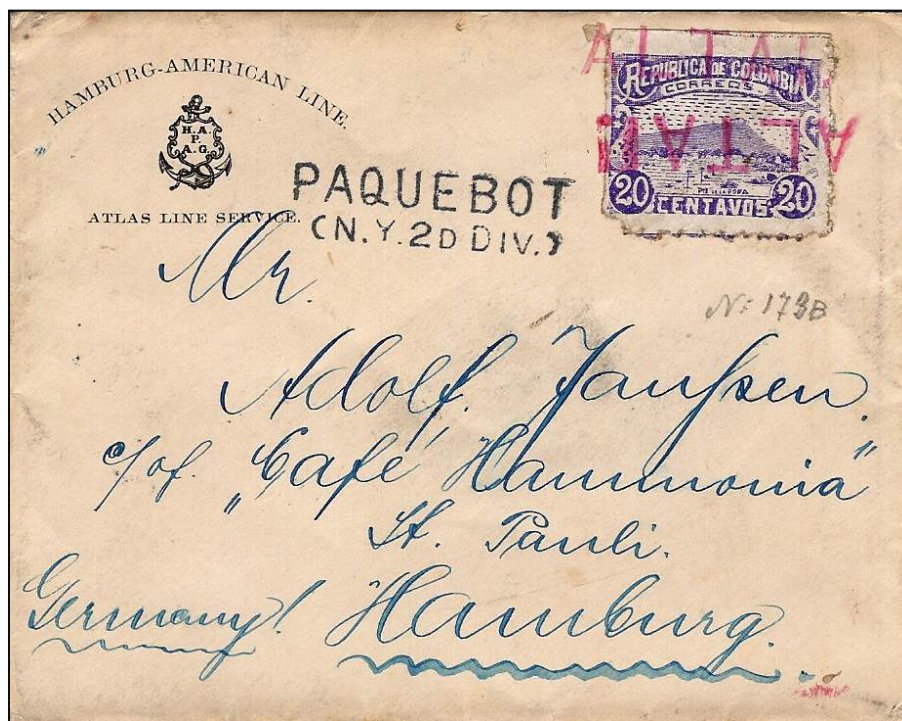 HAMBURG-AMERICAN LINE.
H.A.
P.
A.G.
ATLAS LINE SERVICE.
PAQUEBOT
(N.Y. 2D DIV.)
ALTAI
REPUBLICA DE COLOMBIA
CORREOS
ALTAI
20 CENTAVOS 20
Mr.
Adolf, Janssen.
c/of. „Café Hammonia”
St. Pauli.
Germany! Hamburg.